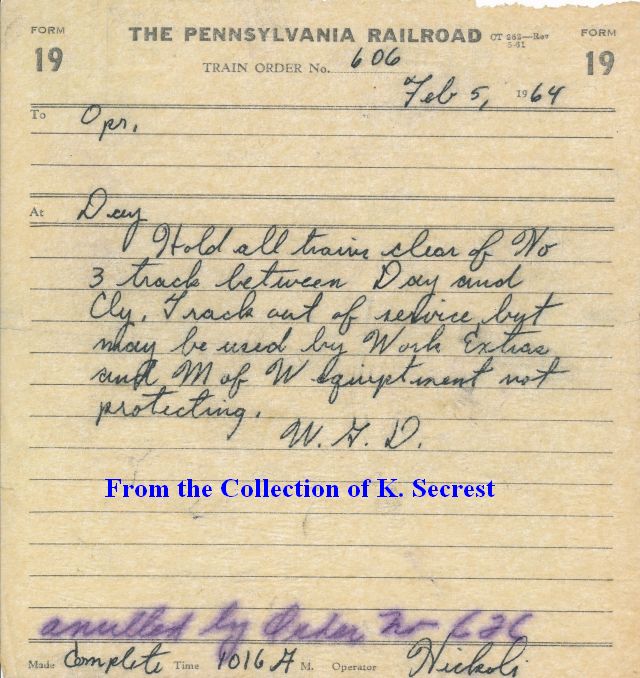 FORM
19
THE PENNSYLVANIA RAILROAD CT 262—Rev
5-61
FORM
19
TRAIN ORDER No. 606
Feb 5, 1964
To Opr.
At Day
Hold all trains clear of No
3 track between Day and
Cly. Track out of service, but
may be used by Work Extras
and M of W equiptment not
protecting.
W. F. D.
From the Collection of K. Secrest
anulled by Order No 626
Made Complete Time 1016 A M. Operator